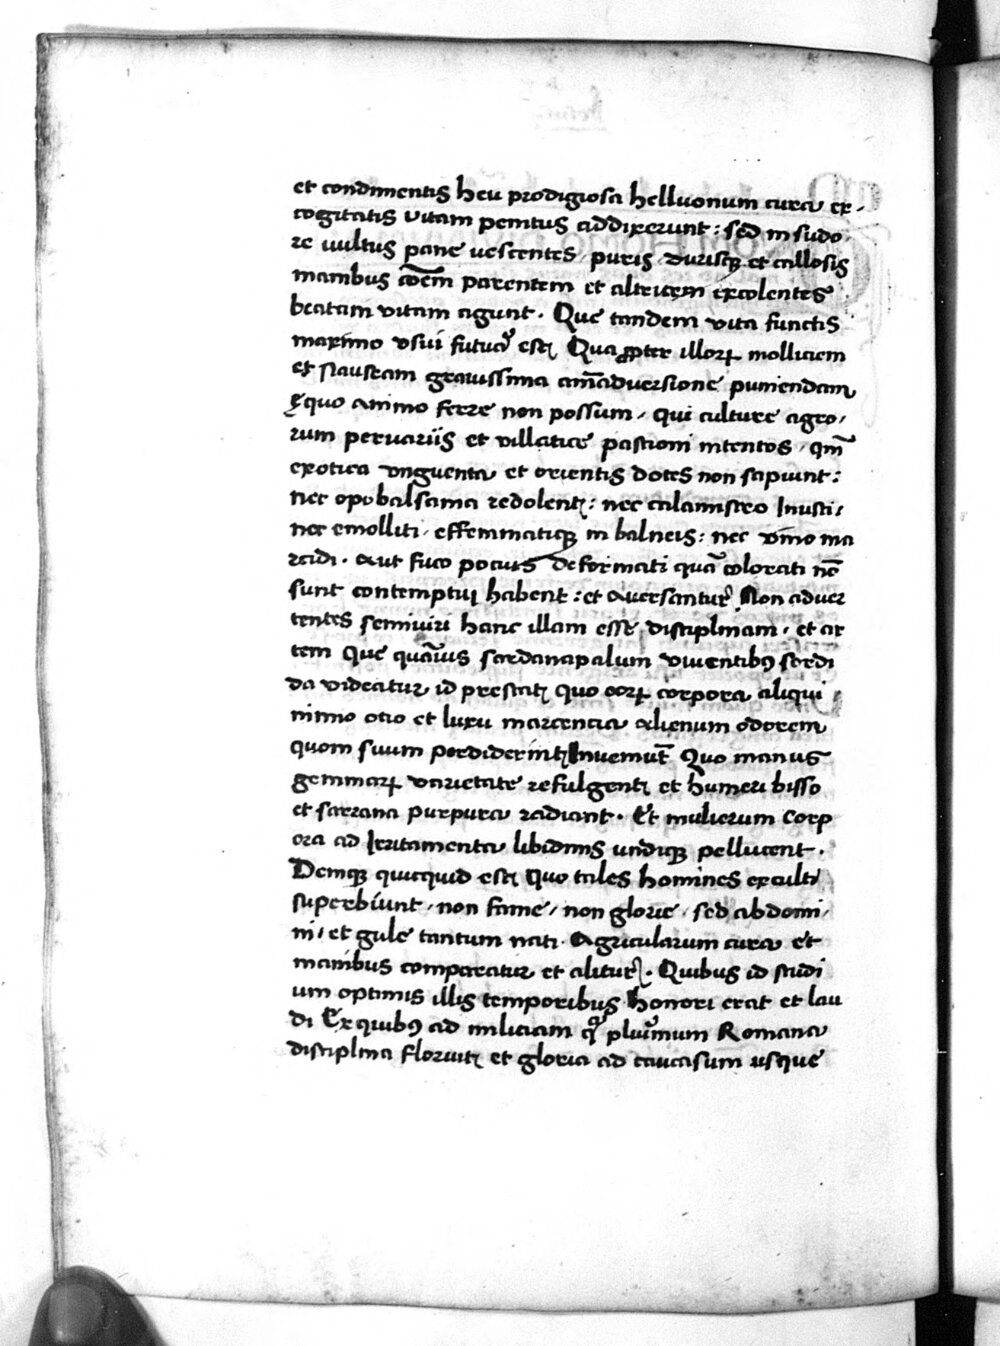 et condimentis heu prodigiosa helluonum cura ex-
cogitatis vitam penitus addixerunt: sed in sudo-
re vultus pane vescentes, puris, durisq; et callosis
manibus cōem parentem et altricem excolentes
beatam vitam agunt. Que tandem vita functis
maximo vsui futura est; Qua ꝓpter illoꝝ molliciem
et nauseam grauissima aīaduersione puniendam
ęquo animo ferre non possum, qui culture agro-
rum peruariis et villatice pastioni intentos, qm̄
exotica vnguenta et orientis dotes non sapiunt:
nec opobalsama redolent; nec calamistro Inusti,
nec emolliti, effeminatiq; in balneis: nec vino ma
cidi. aut fuco potius deformati quā colorati nō
sunt contemptui habent: et auersantur. Non aduer
tentes semiuiri hanc illam esse disciplinam, et ar
tem Que quāuis sardanapalum viuentibꝰ sordi
da videatur id prestat; quo eoꝝ corpora aliqui
nimio otio et luxu marcentia alienum odorem
quom suum perdiderint; Inueniūt Quo manus
gemmaꝝ varietate refulgent; et humeri bisso
et sarrana purpura radiant. Et mulierum corp
ora ad Irritamenta libidinis undiq; pellucent.
Deniq; quicquid est; quo tales homines exculti
superbiunt, non fame, non glorie, sed abdomi-
ni, et gule tantum nati. Agricularum cura et
manibus comparatur et alitur. Quibus id studi
um optimis illis temporibus honori erat et lau
di Ex quibꝰ ad miliciam plurimum Romana
disciplina floruit; et gloria ad caucasum usque